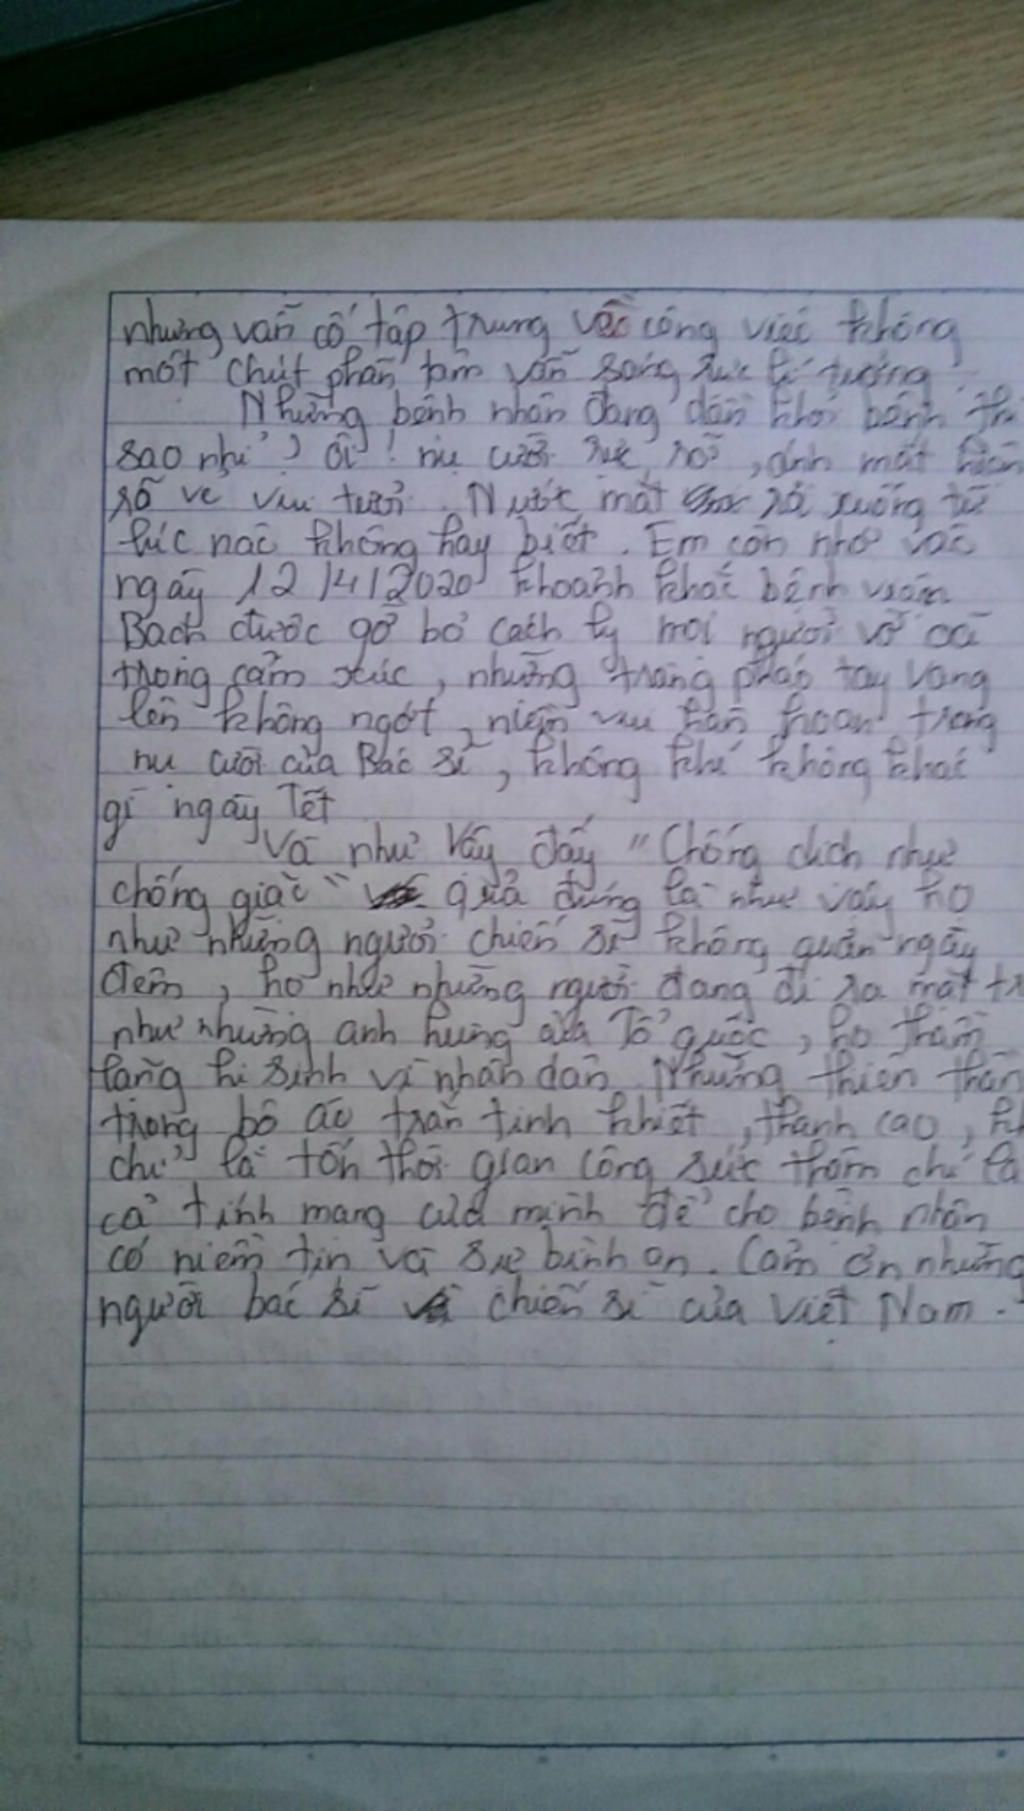 nhưng vẫn cố tập trung vào công việc không
một chút phân tâm vẫn sáng rực lí tưởng
Những bệnh nhân đang dần khỏi bệnh thì
sao nhỉ? ôi! nụ cười rực rỡ, ánh mắt hiện
rõ vẻ vui tươi. Nước mắt rơi xuống từ
lúc nào không hay biết. Em còn nhớ vào
ngày 12/4/2020 khoảnh khắc bệnh viện
Bạch được gỡ bỏ cách ly mọi người vỡ oà
trong cảm xúc, những tràng pháo tay vang
lên không ngớt, niềm vui hân hoan trong
nụ cười của Bác sĩ, không khí không khác
gì ngày Tết
Và như vậy đấy "Chống dịch như
chống giặc" quả đúng là như vậy họ
như những người chiến sĩ không quản ngày
đêm, họ như những người đang đi ra mặt tr
như những anh hùng của Tổ quốc, họ thầm
lặng hi sinh vì nhân dân. Những thiên thần
trong bộ áo trắn tinh khiết, thanh cao, kh
chỉ là tốn thời gian công sức thậm chí là
cả tính mạng của mình để cho bệnh nhân
có niềm tin và sự bình an. Cảm ơn những
người bác sĩ chiến sĩ của Việt Nam.